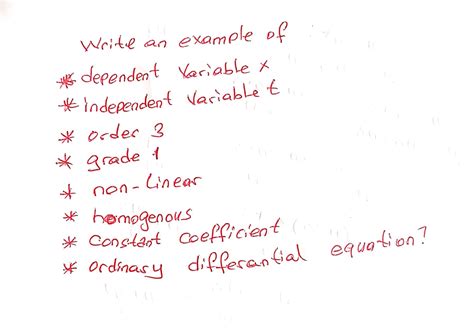 Write an example of
* dependent Variable x
* independent Variable t
* order 3
* grade 1
* non-Linear
* homogenous
* Constant Coefficient
* ordinary differantial equation?